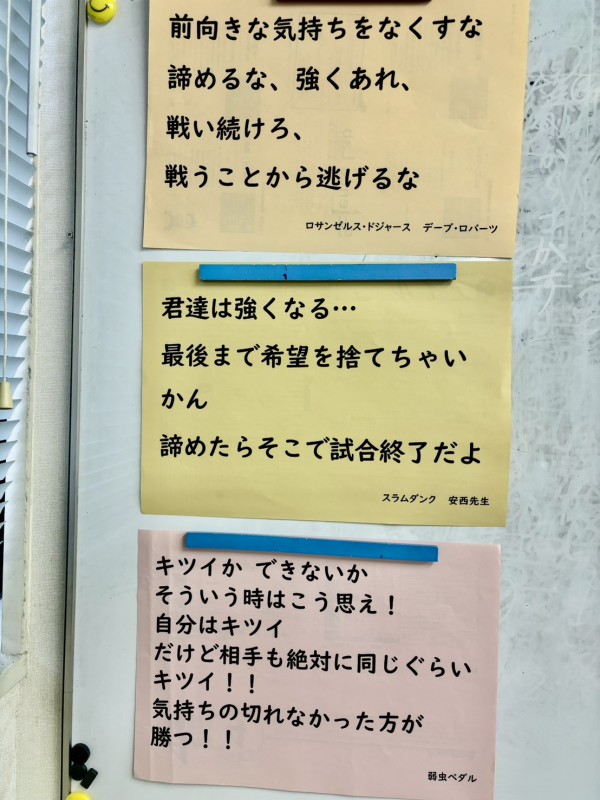 前向きな気持ちをなくすな
諦めるな、強くあれ、
戦い続けろ、
戦うことから逃げるな
ロサンゼルス・ドジャース デーブ・ロバーツ
君達は強くなる…
最後まで希望を捨てちゃい
かん
諦めたらそこで試合終了だよ
スラムダンク 安西先生
キツイか できないか
そういう時はこう思え！
自分はキツイ
だけど相手も絶対に同じぐらい
キツイ！！
気持ちの切れなかった方が
勝つ！！
弱虫ペダル